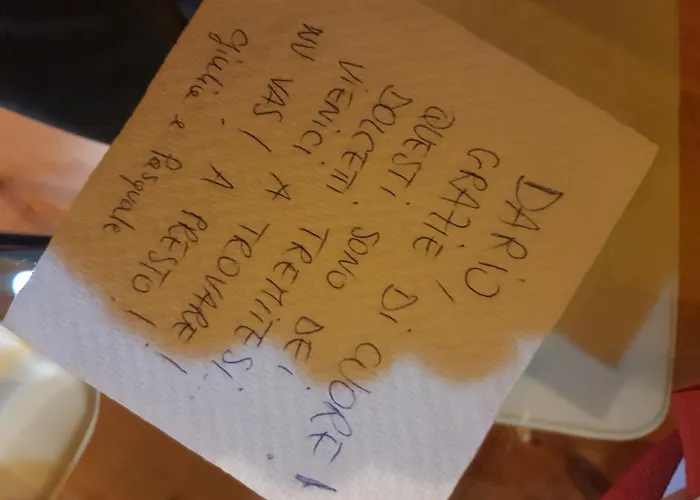 DARIO,
GRAZIE DI CUORE!
QUESTI SONO DEI
DOLCETTI TREMITESI...
VIENICI A TROVARE!
NU VAS! A PRESTO!
Giulia e Pasquale